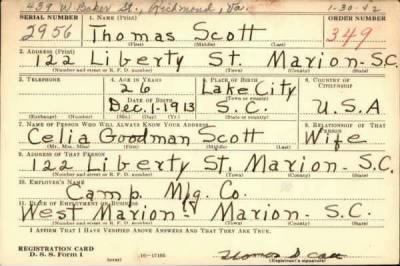 439 W. Baker St., Richmond, Va. 1-30-42
SERIAL NUMBER 1. NAME (Print) ORDER NUMBER
2956 Thomas Scott 349
(First) (Middle) (Last)
2. ADDRESS (Print)
122 Liberty St. Marion-S.C.
(Number and street or R. F. D. number) (Town) (County) (State)
3. TELEPHONE 4. AGE IN YEARS 5. PLACE OF BIRTH 6. COUNTRY OF CITIZENSHIP
26 Lake City
DATE OF BIRTH (Town or county)
Dec, 1-1913 S.C. U.S.A
(Exchange) (Number) (Mo.) (Day) (Yr.) (State or country)
7. NAME OF PERSON WHO WILL ALWAYS KNOW YOUR ADDRESS 8. RELATIONSHIP OF THAT PERSON
Celia Goodman Scott Wife
(Mr., Mrs., Miss) (First) (Middle) (Last)
9. ADDRESS OF THAT PERSON
122 Liberty St, Marion-S.C.
(Number and street or R. F. D. number) (Town) (County) (State)
10. EMPLOYER'S NAME
Camp Mfg. Co.
11. PLACE OF EMPLOYMENT OR BUSINESS
West Marion- Marion - S.C.
(Number and street or R. F. D. number) (Town) (County) (State)
I AFFIRM THAT I HAVE VERIFIED ABOVE ANSWERS AND THAT THEY ARE TRUE.
REGISTRATION CARD
D. S. S. Form 1 16-17105 (Registrant's signature)